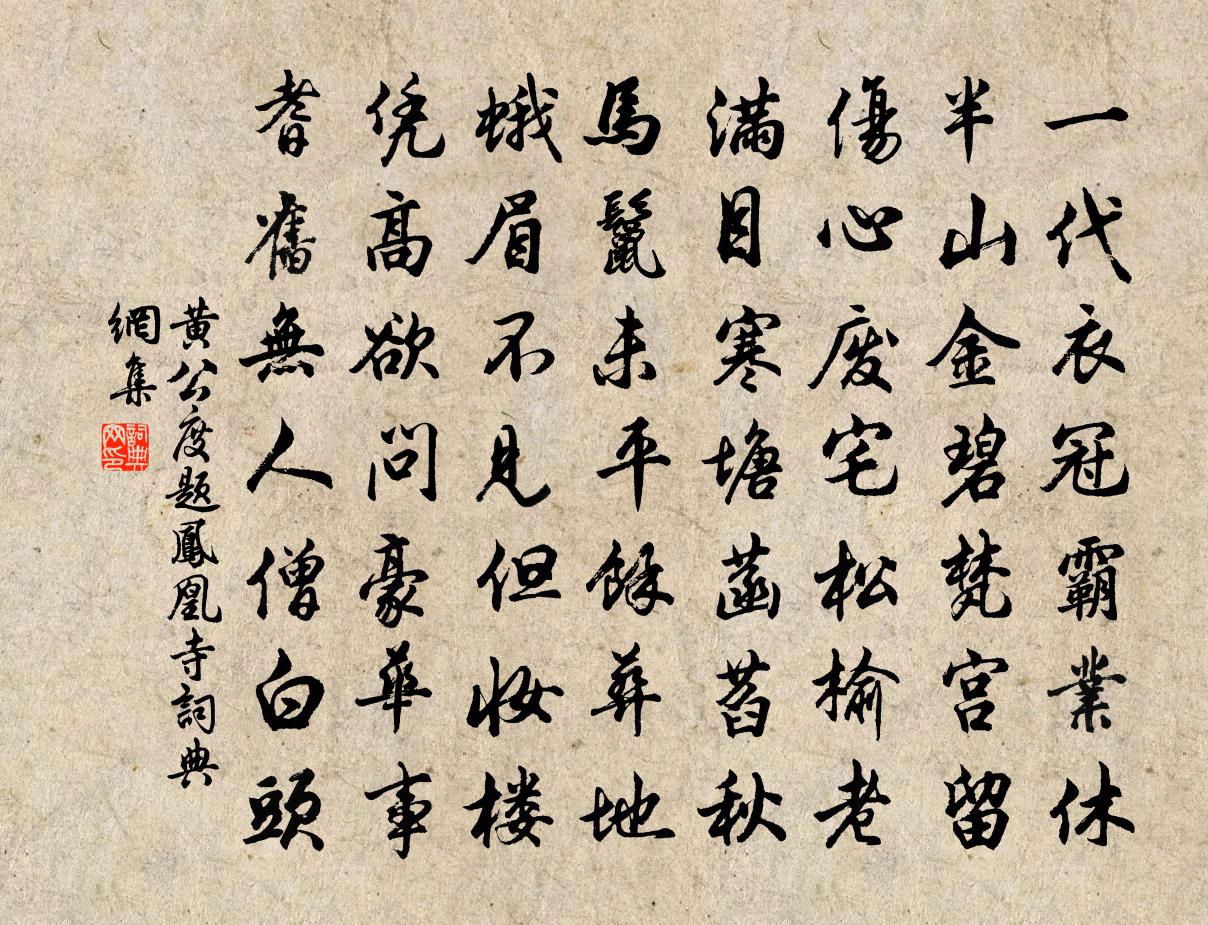 一代衣冠霸業休
半山金碧梵宮留
傷心廢宅松榆老
滿目寒塘菡萏秋
馬鬣未平餘葬地
蛾眉不見但妝樓
凭高欲問豪華事
耆舊無人僧白頭
黃公度題鳳凰寺詞典
網集
詞典網印